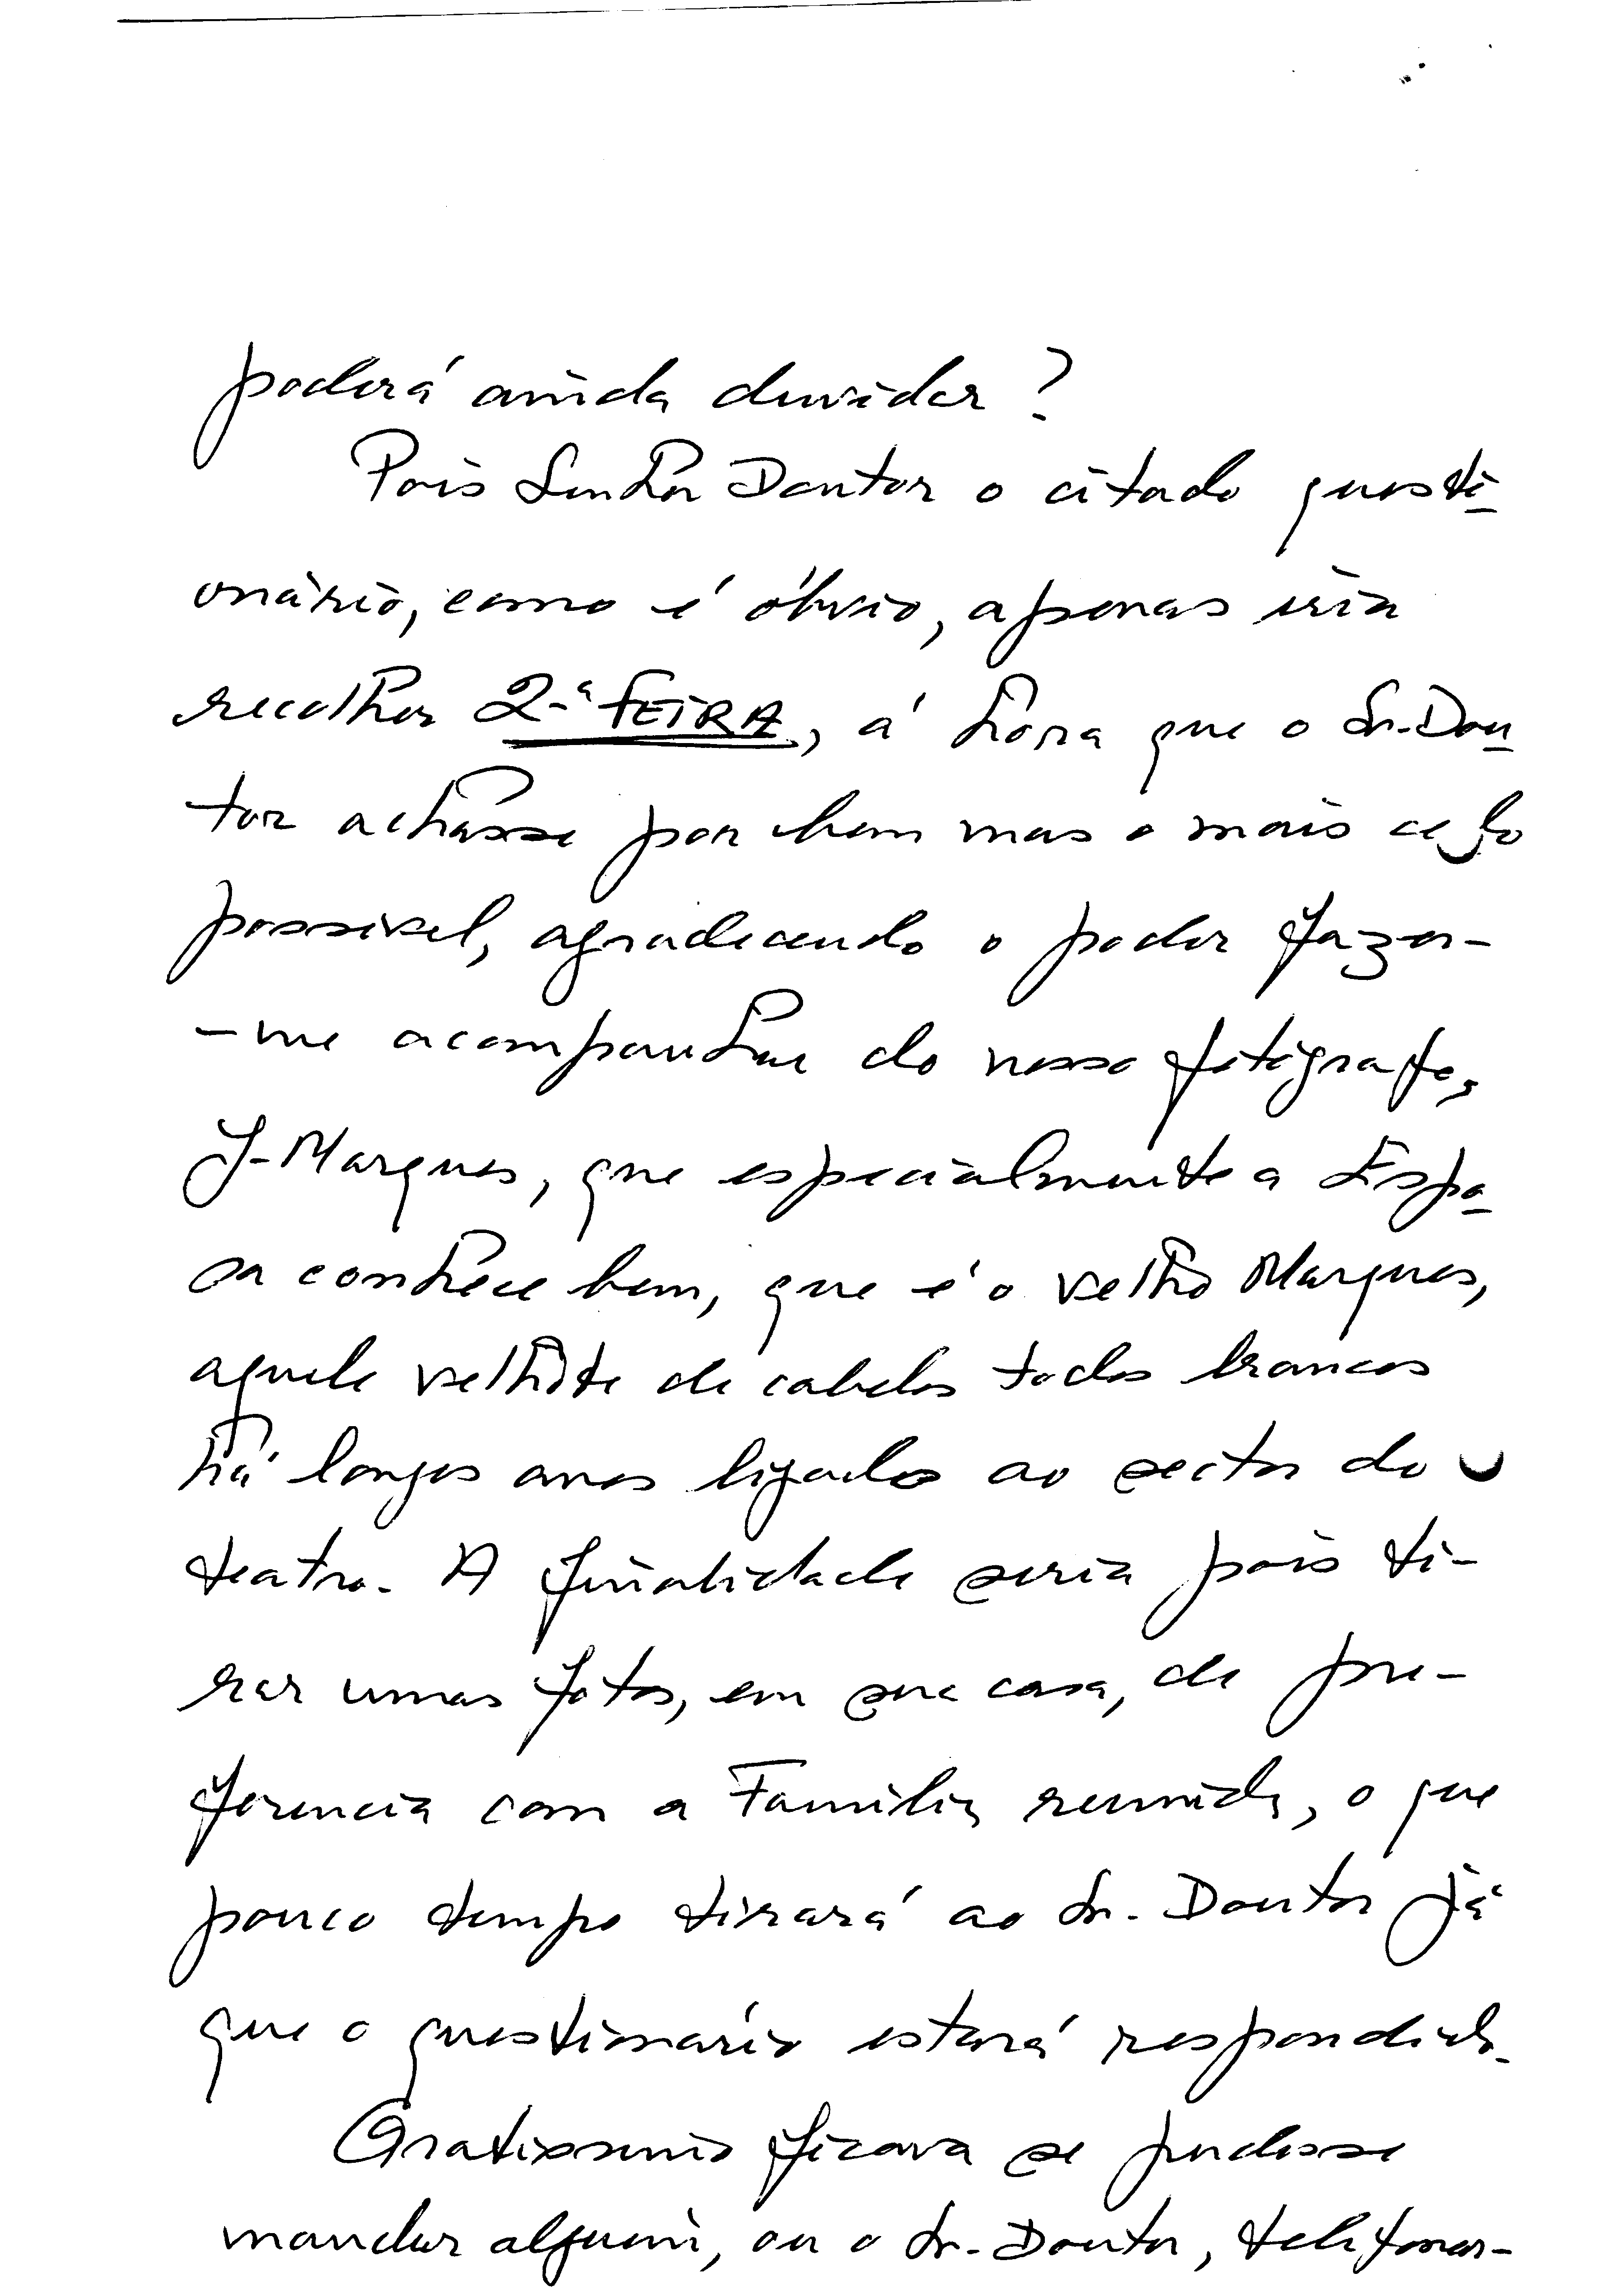 poderá ainda duvidar?
Pois Senhor Doutor o citado questi
onário, como é óbvio, apenas iria
recolher 2.ª FEIRA, á hora que o Sr. Dou
tor achasse por bem mas o mais cedo
possivel, agradecendo o poder fazer-
-me acompanhar do nosso fotógrafo,
J. Marques, que especialmente a Espo
sa conhece bem, que é o velho Marques,
aquele velhote de cabelos todos brancos
há longos anos ligado ao sector do
teatro. A finalidade seria pois ti-
rar umas fotos, em sua casa, de pre-
ferencia com a Familia reunida, o que
pouco tempo tirará ao Sr. Doutor já
que o questionário estará respondido.
Gratissimo ficava se pudesse
mandar alguem, ou o Sr. Doutor, telefonar-